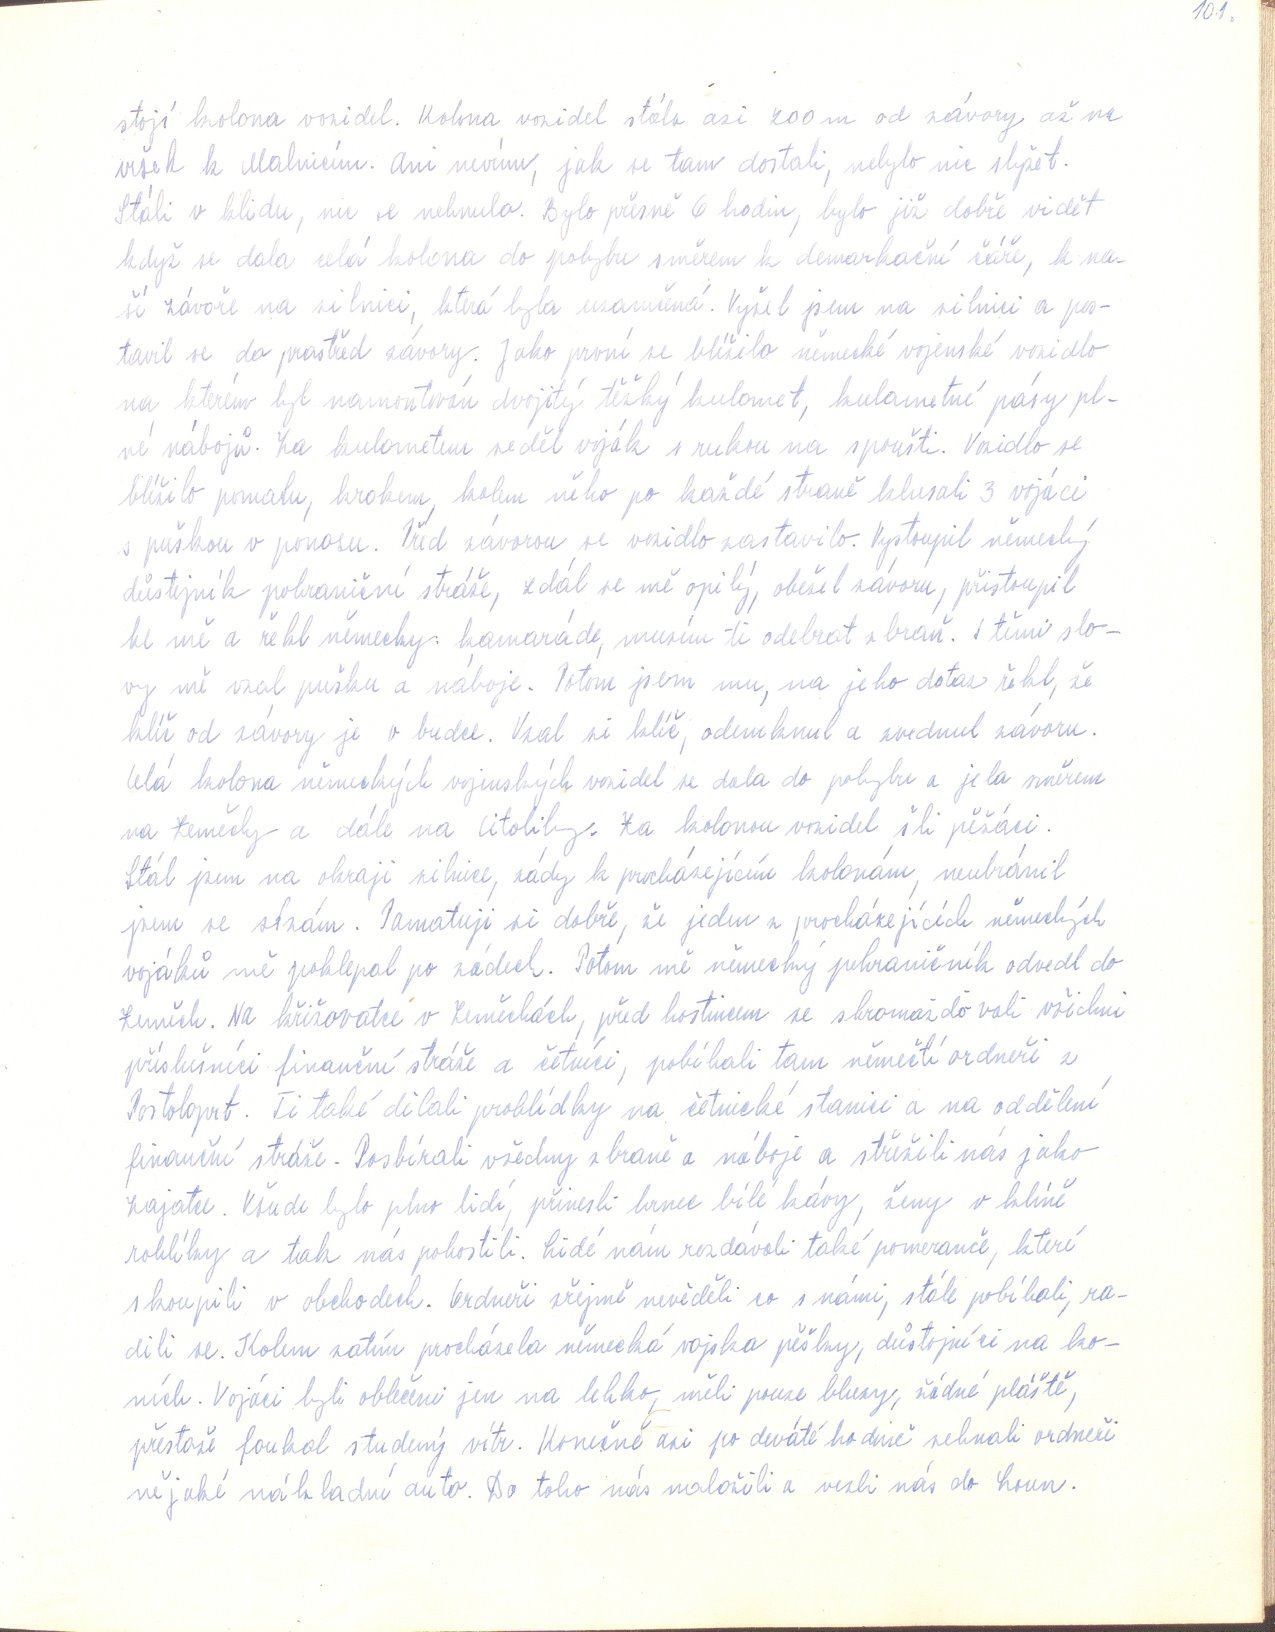 101.
stojí kolona vozidel. Kolona vozidel stála asi 200 m od závory až na
vršek k Malnicím. Ani nevím, jak se tam dostali, nebylo nic slyšet.
Stáli v klidu, nic se nehnulo. Bylo přesně 6 hodin, bylo již dobře vidět
když se dala celá kolona do pohybu směrem k demarkační čáře, k na-
ší závoře na silnici, která byla uzamčená. Vyšel jsem na silnici a pos-
tavil se do prostřed závory. Jako první se blížilo německé vojenské vozidlo
na kterém byl namontován dvojitý těžký kulomet, kulometné pásy pl-
né nábojů. Za kulometem seděl voják s rukou na spoušti. Vozidlo se
blížilo pomalu, krokem, kolem něho po každé straně klusali 3 vojáci
s puškou v ponosu. Před závorou se vozidlo zastavilo. Vystoupil německý
důstojník pohraniční stráže, zdál se mě opilý, obešel závoru, přistoupil
ke mě a řekl německy: kamaráde, musím ti odebrat zbraň. S těmi slo-
vy mě vzal pušku a náboje. Potom jsem mu, na jeho dotaz řekl, že
klíč od závory je v budce. Vzal si klíč, odemknul a zvednul závoru.
Celá kolona německých vojenských vozidel se dala do pohybu a jela směrem
na Zeměchy a dále na Citoliby. Za kolonou vozidel šli pěšáci.
Stál jsem na okraji silnice, zády k procházejícím kolonám, neubránil
jsem se slzám. Pamatuji si dobře, že jeden z procházejících německých
vojáků mě poklepal po zádech. Potom mě německý pohraničník odvedl do
Zeměch. Na křižovatce v Zeměchách, před hostincem se shromažďovali všichni
příslušníci finanční stráže a četníci, pobíhali tam němečtí ordneři z
Postoloprt. Ti také dělali prohlídky na četnické stanici a na oddělení
finanční stráže. Posbírali všechny zbraně a náboje a střežili nás jako
zajatce. Všude bylo plno lidí, přinesli hrnec bílé kávy, ženy v klíně
rohlíky a tak nás pohostili. Lidé nám rozdávali také pomeranče, které
skoupili v obchodech. Ordneři zřejmě nevěděli co s námi, stále pobíhali, ra-
dili se. Kolem zatím procházela německá vojska pěšky, důstojníci na ko-
ních. Vojáci byli oblečeni jen na lehko, měli pouze bluzy, žádné pláště,
přestože foukal studený vítr. Konečně asi po deváté hodině sehnali ordneři
nějaké nákladní auto. Do toho nás naložili a vezli nás do Loun.